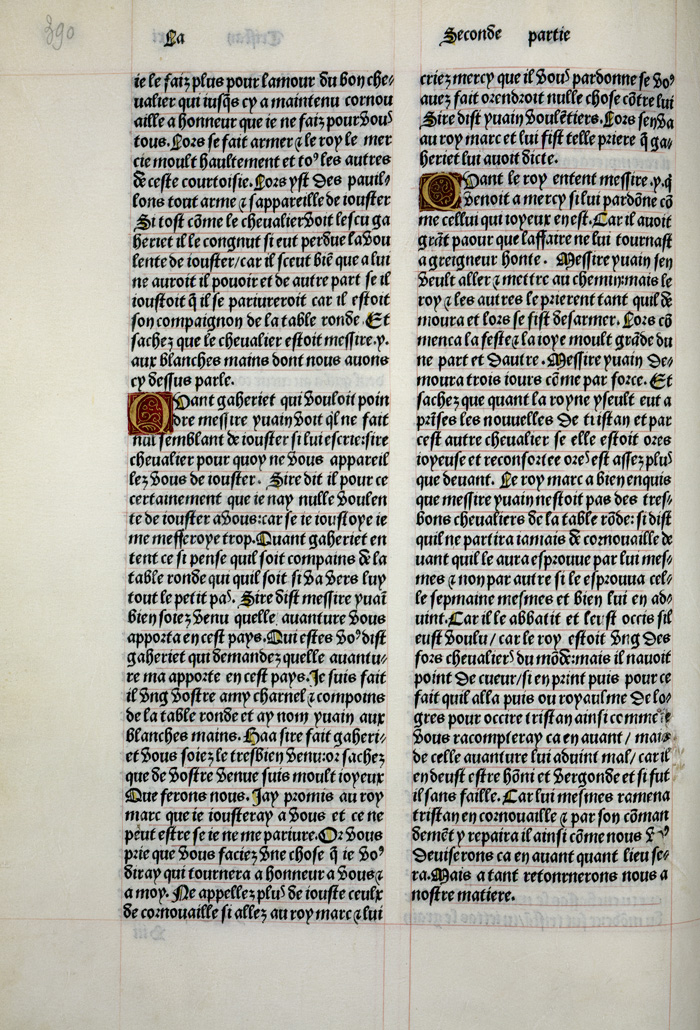 390
La
Seconde partie
ie le faiz plus pour lamour du bon che⸗
ualier qui iusq̃s cy a maintenu cornou
aille a honneur que ie ne faiz pour vou⁹
tous. Lors se fait armer ⁊ le roy le mer
cie moult haultement et to⁹ les autres
de ceste courtoisie. Lors yst des pauil⸗
lons tout arme ⁊ sappareille de iouster
Si tost cõme le cheualier voit lescu ga
heriet il le congnut si eut perdue la vou
lente de iouster/car il sceut biẽ que a lui
ne auroit il pouoir et de autre part se il
ioustoit q̃ il se pariureroit car il estoit
son compaignon de la table ronde. Et
sachez que le cheualier estoit messire .y.
aux blanches mains dont nous auons
cy dessus parle.
Quant gaheriet qui vouloit poin
dre messire yuain voit q̃l ne fait
nul semblant de iouster si lui escrie:sire
cheualier pour quoy ne vous appareil
lez vous de iouster. Sire dit il pour ce
certainement que ie nay nulle voulen
te de iouster a vous:car se ie ioustoye ie
me mefferoye trop. Quant gaheriet en
tent ce si pense quil soit compains de la
table ronde qui quil soit si va vers luy
tout le petit pas. Sire dist messire yuaĩ
bien soiez venu quelle auanture vous
apporta en cest pays. Qui estes vo⁹ dist
gaheriet qui demandez quelle auantu⸗
re ma apporte en cest pays. Je suis fait
il vng vostre amy charnel ⁊ compoins
de la table ronde et ay nom yuain aux
blanches mains. Haa sire fait gaheri⸗
et vous soiez le tresbien venu:or sachez
que de vostre venue suis moult ioyeux
Que ferons nous. Jay promis au roy
marc que ie iousteray a vous et ce ne
peut estre se ie ne me pariure. Or vous
prie que vous faciez vne chose q̃ ie vo⁹
diray qui tournera a honneur a vous ⁊
a moy. Ne appellez plus de iouste ceulx
de cornouaille si allez au roy marc ⁊ lui
criez mercy que il vous pardonne se vo⁹
auez fait orendroit nulle chose cõtre lui
Sire dist yuain voulẽtiers. Lors sen va
au roy marc et lui fist telle priere q̃ ga⸗
heriet lui auoit dicte.
Quant le roy entent messire .y. q̃
venoit a mercy si lui pardõne cõ
me cellui qui ioyeux en est. Car il auoit
grãt paour que laffaire ne lui tournast
a greigneur honte. Messire yuain sen
veult aller ⁊ mettre au chemin:mais le
roy ⁊ les autres le prierent tant quil de
moura et lors se fist desarmer. Lors cõ
menca la feste ⁊ la ioye moult grãde du
ne part et dautre. Messire yuain de⸗
moura trois iours cõme par force. Et
sachez que quant la royne yseult eut a
prĩses les nouuelles de tristan et par
cest autre cheualier se elle estoit ores
ioyeuse et reconfortee ores est assez plus
que deuant. Le roy marc a bien enquis
que messire yuain nestoit pas des tres⸗
bons cheualiers de la table rõde: si dist
quil ne partira iamais de cornouaille de
uant quil le aura esprouue par lui mes⸗
mes ⁊ non par autre si le esprouua cel⸗
le sepmaine mesmes et bien lui en ad⸗
uint. Car il le abbatit et leust occis sil
eust voulu/car le roy estoit vng des
fors cheualiers du mõde:mais il nauoit
point de cueur/si en print puis pour ce
fait quil alla puis ou royaulme de lo⸗
gres pour occire tristan ainsi comme ie
vous racompteray ca en auant/ mais
de celle auanture lui aduint mal/car il
en deust estre hõni et vergonde et si fut
il sans faille. Car lui mesmes ramena
tristan en cornouaille ⁊ par son cõman
demẽt y repaira il ainsi cõme nous v⁹
deuiserons ca en auant quant lieu se⸗
ra. Mais a tant retournerons nous a
nostre matiere.